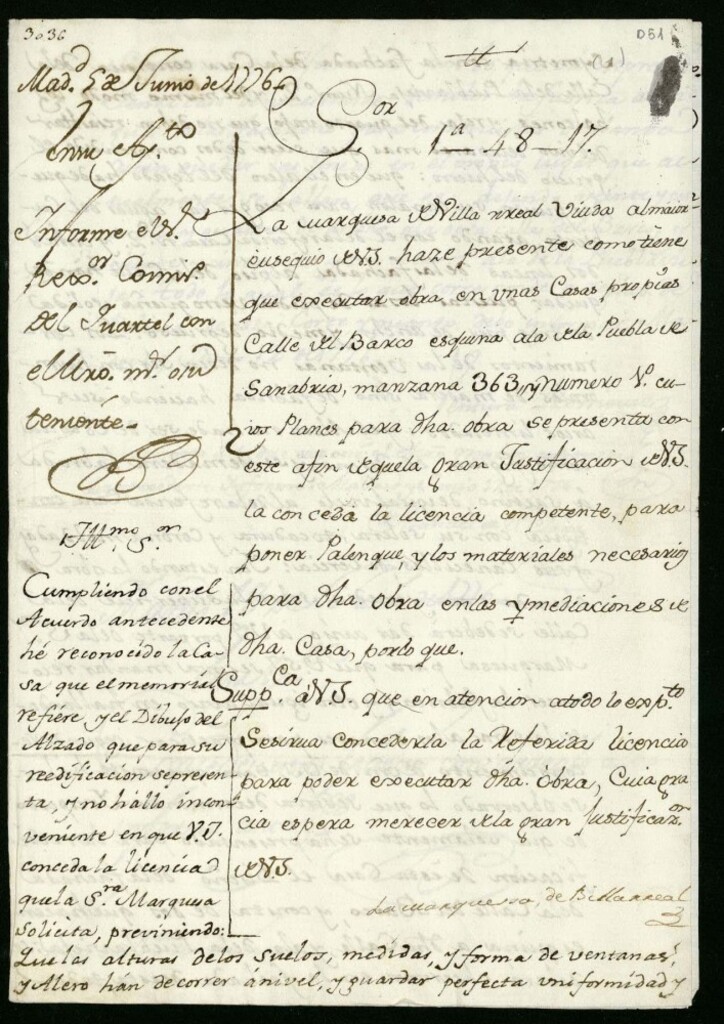 3636
D51
tt
(1)
Mad.d 5 de Junio de 1776
S.or
1a 48 17.
en su Ay.to
Informe el S.r
Rex.or Comis.o
del Quartel con
el Mro. m.or ó su
teniente.
La Marquesa de Villa rreal Viuda al maior
eusequio de V.S. haze presente como tiene
que executar obra en unas Casas propias
Calle del Barco esquina ala de la Puebla de
Sanabria, manzana 363, y numero 1.o cu-
ios Planes para dha. obra se presenta con
este afin de quela gran Justificacion de V.S.
la conceda la licencia competente, para
poner Palenque, y los materiales necesarios
para dha. obra en las Ymediaciones de
dha. Casa, porlo que.
Supp.ca a V.S. que en atencion atodo lo exp.to
Sesirua Concederla la Referida licencia
para poder executar dha. Obra, Cuia gra
cia espera merecer de la gran Justificaz.on
de V.S.
La Marquessa, de Billarreal
Ill.mo S.or
Cumpliendo con el
Acuerdo antecedente
hé reconocido la Ca-
sa que el memorial
refiére, y el Dibujo del
Alzado que para su
reedificacion se presen-
ta, y no hállo incon-
veniente en que V.S.
conceda la licencia
quela S.ra Marquesa
solicita, previniendo:
Que las alturas delos suelos, medidas, y forma de ventanas,
y Alero hán de correr ánivel, y guardar perfecta uniformidad y